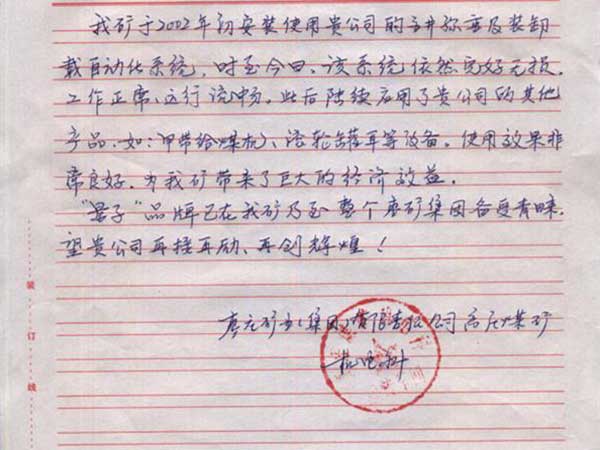 我矿于2002年初安装使用贵公司的主井称重及装卸
载自动化系统，时至今日、该系统依然完好无损，
工作正常、运行流畅。此后陆续启用了贵公司的其他
产品．如：甲带给煤机、滚轮罐耳等设备．使用效果非
常良好．为我矿带来了巨大的经济效益．
“量子”品牌已在我矿乃至整个枣矿集团备受青睐．
望贵公司再接再励、再创辉煌！
枣庄矿业(集团)有限责任公司高庄煤矿
机电科
装
订
线